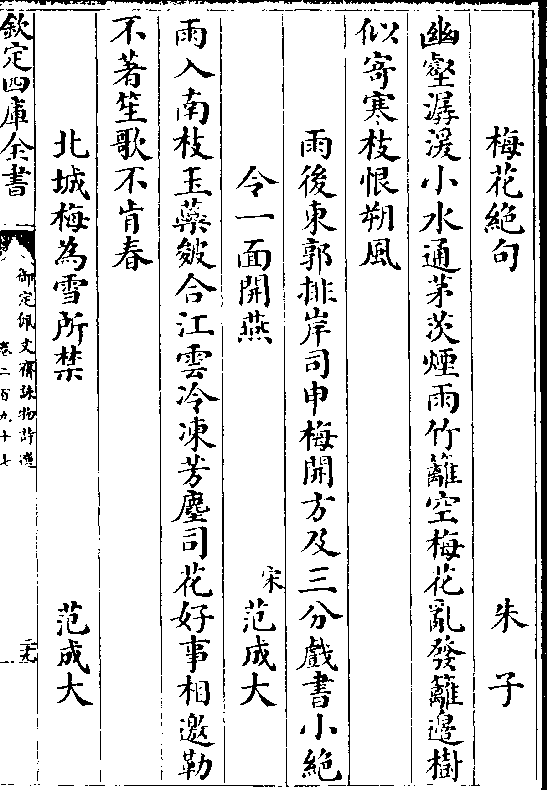 梅花絶句 朱子
幽壑潺湲小水通茅茨煙雨竹籬空梅花亂發籬邊樹
似寄寒枝恨朔風
雨後東郭排岸司申梅開方及三分戲書小絶
令一面開燕 宋 范成大
雨入南枝玉蘂皴合江雲冷凍芳塵司花好事相邀勒
不著笙歌不肯春
北城梅為雪所禁 范成大
欽定四庫全書 御定佩文齋詠物詩選 卷二百九十七 二九